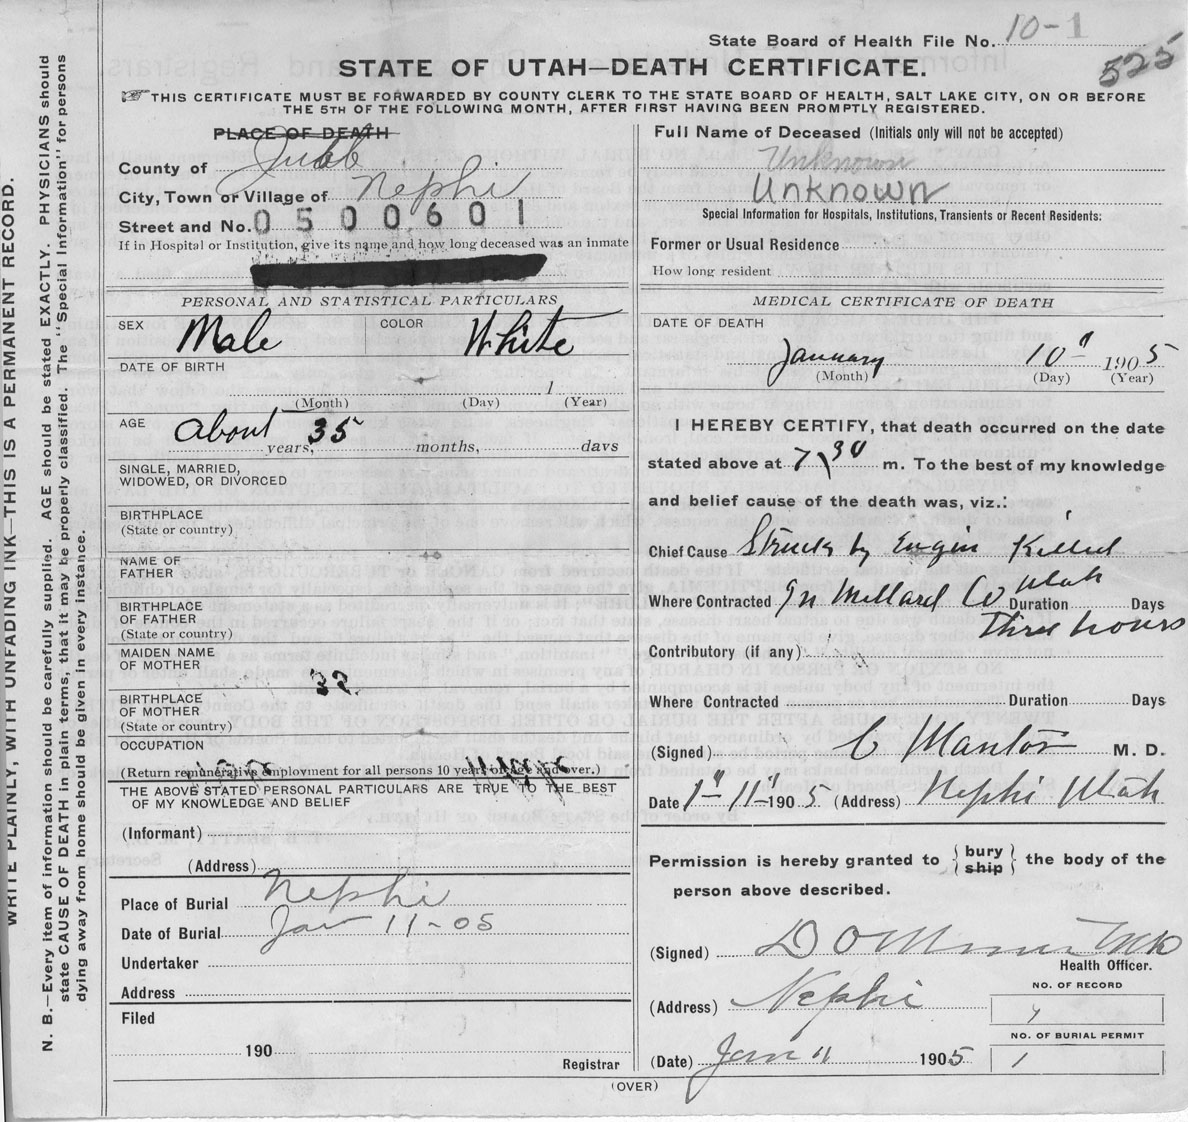 State Board of Health File No. 10-1
525
STATE OF UTAH—DEATH CERTIFICATE.
THIS CERTIFICATE MUST BE FORWARDED BY COUNTY CLERK TO THE STATE BOARD OF HEALTH, SALT LAKE CITY, ON OR BEFORE
THE 5TH OF THE FOLLOWING MONTH, AFTER FIRST HAVING BEEN PROMPTLY REGISTERED.
WRITE PLAINLY, WITH UNFADING INK—THIS IS A PERMANENT RECORD.
N. B.—Every item of information should be carefully supplied. AGE should be stated EXACTLY. PHYSICIANS should
state CAUSE OF DEATH in plain terms, that it may be properly classified. The "Special Information" for persons
dying away from home should be given in every instance.
PLACE OF DEATH
County of Juab
City, Town or Village of Nephi
Street and No. 0500601
If in Hospital or Institution, give its name and how long deceased was an inmate
PERSONAL AND STATISTICAL PARTICULARS
SEX Male COLOR White
DATE OF BIRTH
1
(Month) (Day) (Year)
AGE about 35
years, months, days
SINGLE, MARRIED,
WIDOWED, OR DIVORCED
BIRTHPLACE
(State or country)
NAME OF
FATHER
BIRTHPLACE
OF FATHER
(State or country)
MAIDEN NAME
OF MOTHER
32
BIRTHPLACE
OF MOTHER
(State or country)
OCCUPATION
(Return remunerative employment for all persons 10 years of age and over.)
THE ABOVE STATED PERSONAL PARTICULARS ARE TRUE TO THE BEST
OF MY KNOWLEDGE AND BELIEF
(Informant)
(Address)
Place of Burial Nephi
Date of Burial Jan 11-05
Undertaker
Address
Filed
190
Registrar
Full Name of Deceased (Initials only will not be accepted)
Unknown
Unknown
Special Information for Hospitals, Institutions, Transients or Recent Residents:
Former or Usual Residence
How long resident
MEDICAL CERTIFICATE OF DEATH
DATE OF DEATH
January 10" 1905
(Month) (Day) (Year)
I HEREBY CERTIFY, that death occurred on the date
stated above at 7 30 m. To the best of my knowledge
and belief cause of the death was, viz.:
Chief Cause Struck by Engin Killed
Where Contracted In Millard Co Utah Duration Days
three hours
Contributory (if any)
Where Contracted Duration Days
(Signed) M. D.
Date 1" 11" 1905 (Address) Nephi Utah
Permission is hereby granted to { bury ship } the body of the
person above described.
(Signed)
Health Officer.
(Address) Nephi
NO. OF RECORD
NO. OF BURIAL PERMIT
1
(Date) Jan 11 1905
(OVER)